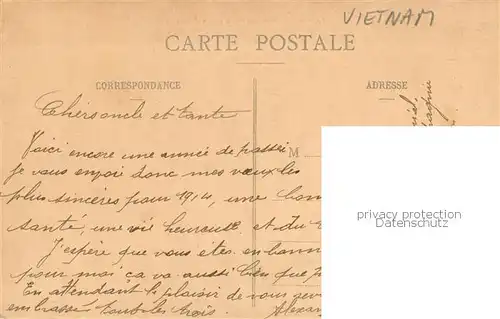 VIETNAM
CARTE POSTALE
CORRESPONDANCE
ADRESSE
Chers oncle et tante
Voici encore une année de passée
je vous envoie donc mes vœux les
M
plus sincères pour 1914, une bon
santé, une vie heureuse et du
J'espère que vous êtes en bonn
pour moi ça va aussi bien que p
En attendant le plaisir de vous
embrasse tout les trois. Alexan
privacy protection
www.AnkPic.de